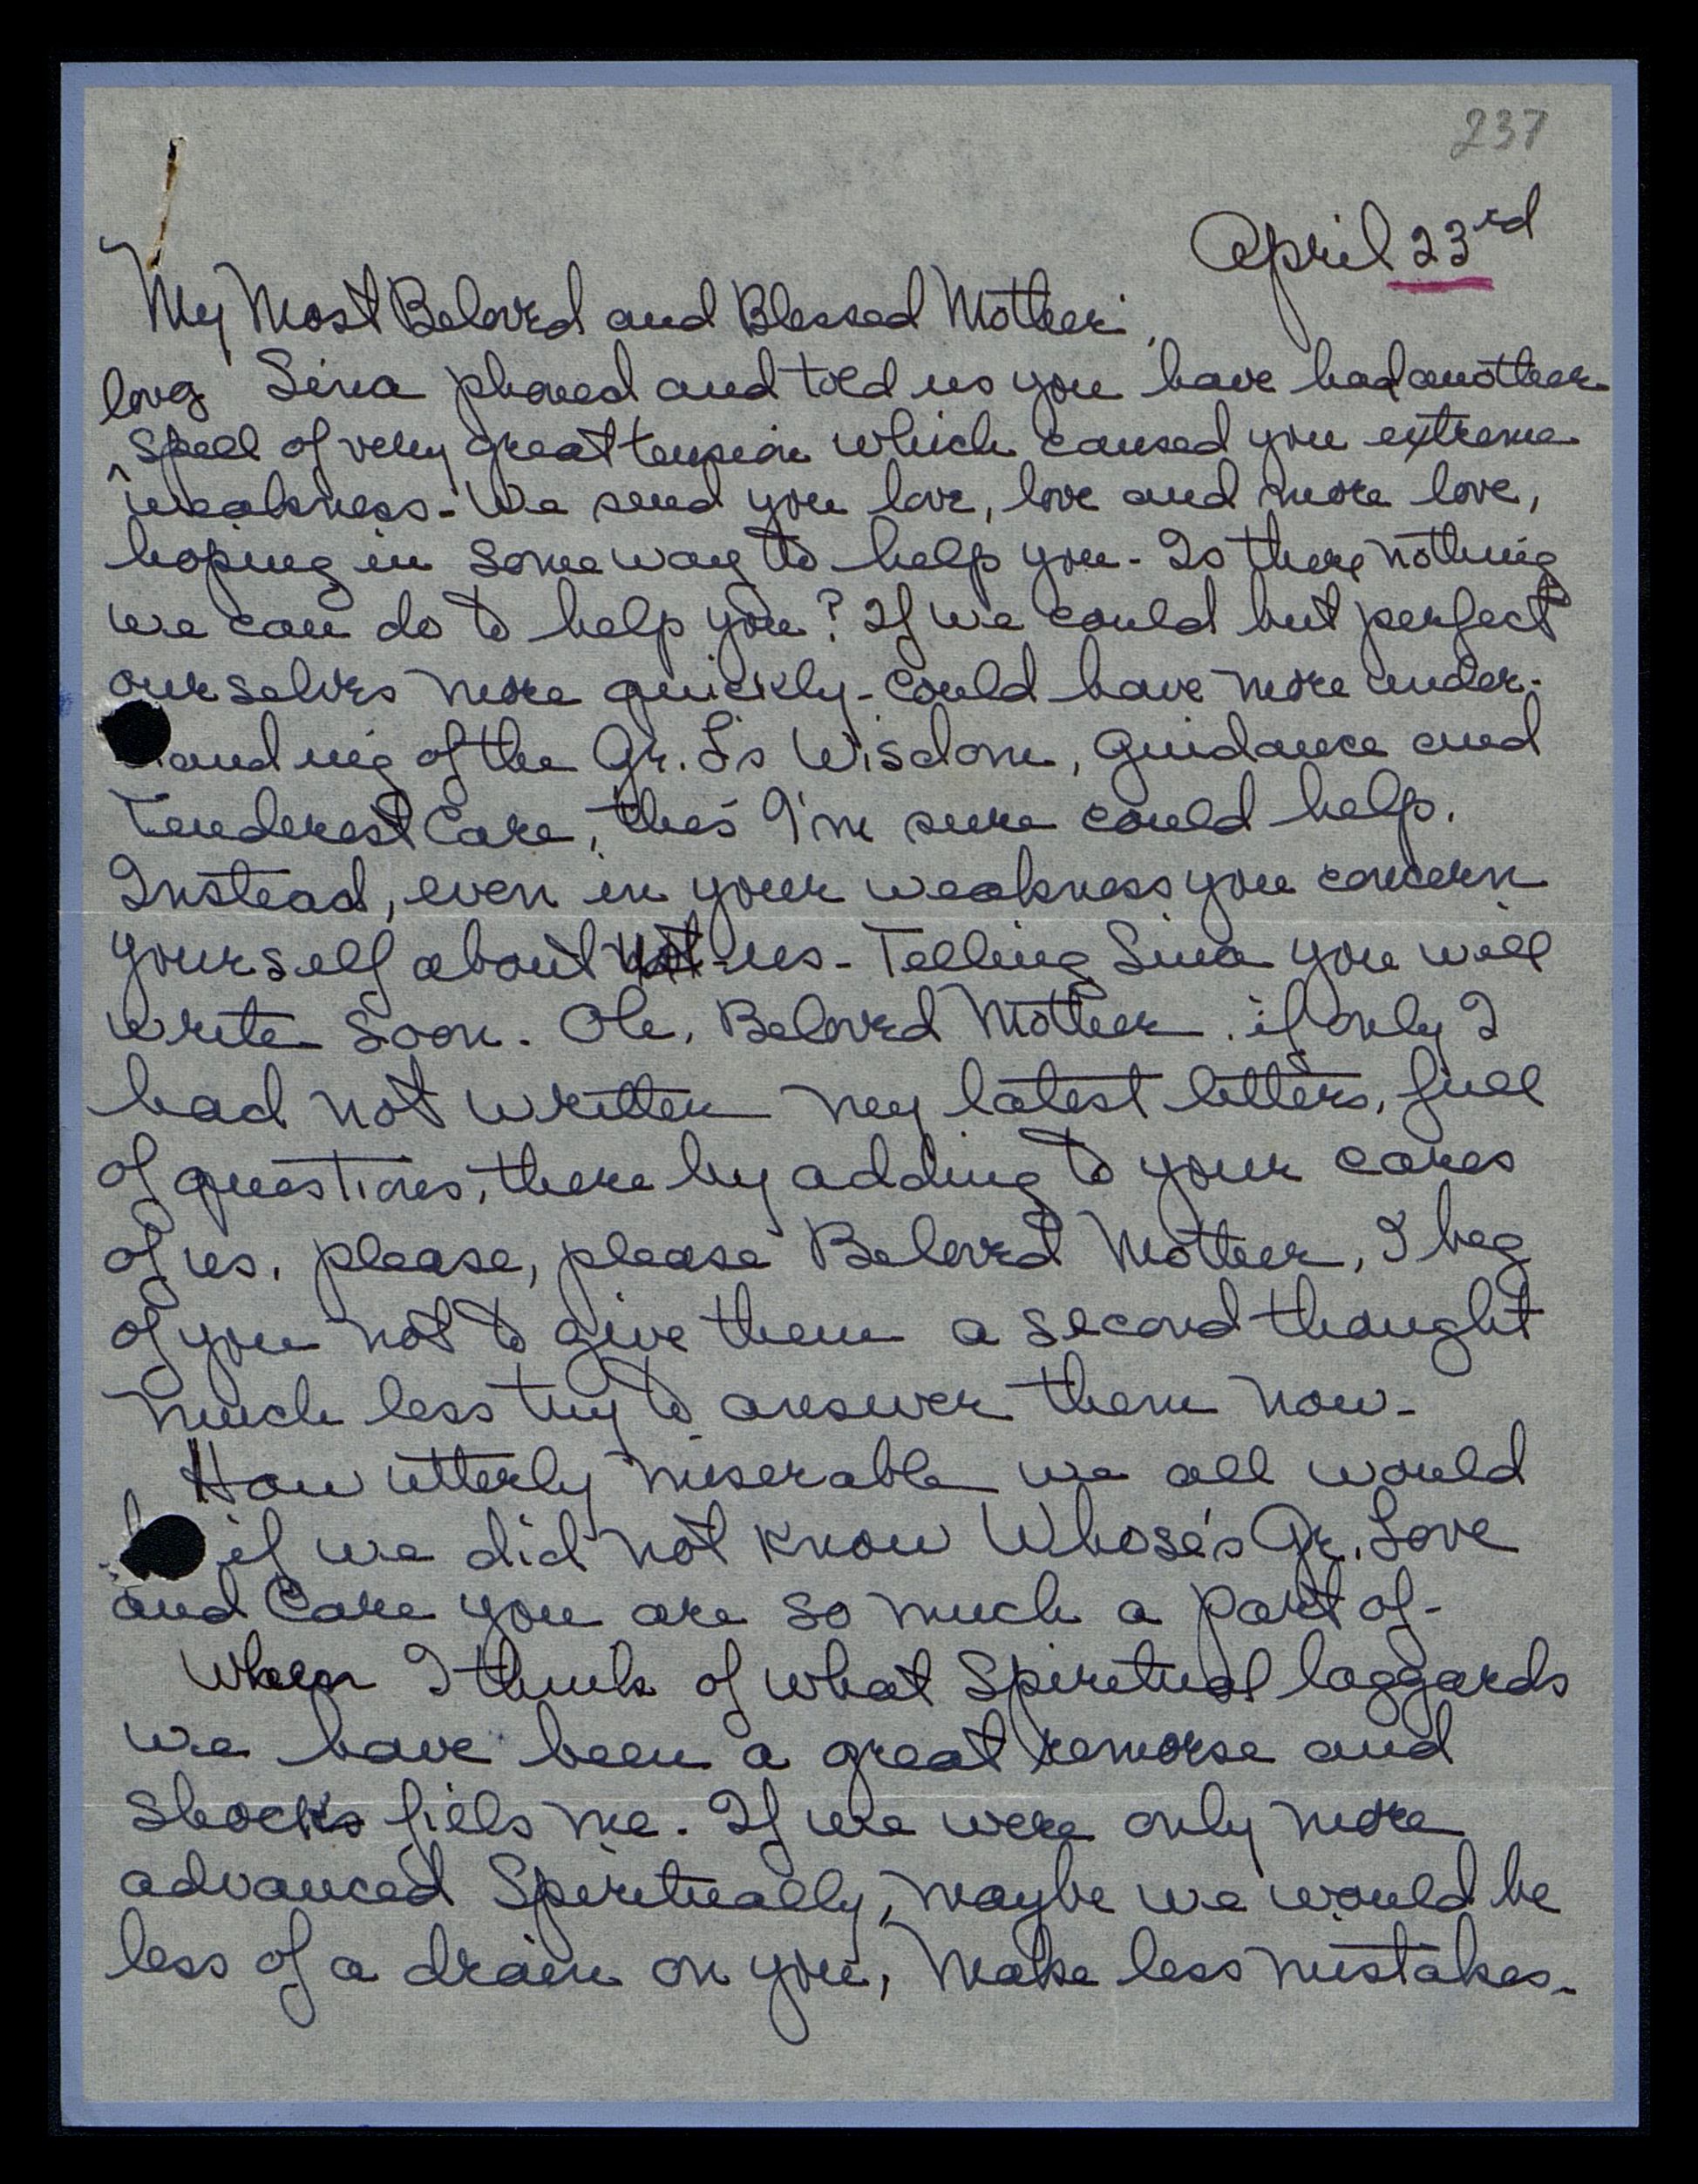 237
April 23rd
My Most Beloved and Blessed Mother:
long Sina phoned and told us you have had another
^ spell of very great tension which caused you extreme
weakness - We send you love, love and more love,
hoping in some way to help you - Is there nothing
we can do to help you? If we could but perfect
ourselves more quickly - could have more under-
anding of the Gr. L's Wisdom, Guidance and
Tenderest Care, this I'm sure could help.
Instead, even in your weakness you concern
yourself about us - Telling Sina you will
write soon. Oh, Beloved Mother, if only I
had not written my latest letters, full
of questions, there by adding to your cares
of us, please, please Beloved Mother, I beg
of you not to give them a second thought
much less try to answer them now -
How utterly miserable we all would
if we did not know Whose's Gr. Love
and Care you are so much a part of -
When I think of what Spiritual laggards
we have been a great remorse and
shocks fills me. If we were only more
advanced Spiritually, maybe we would be
less of a drain on you, make less mistakes -